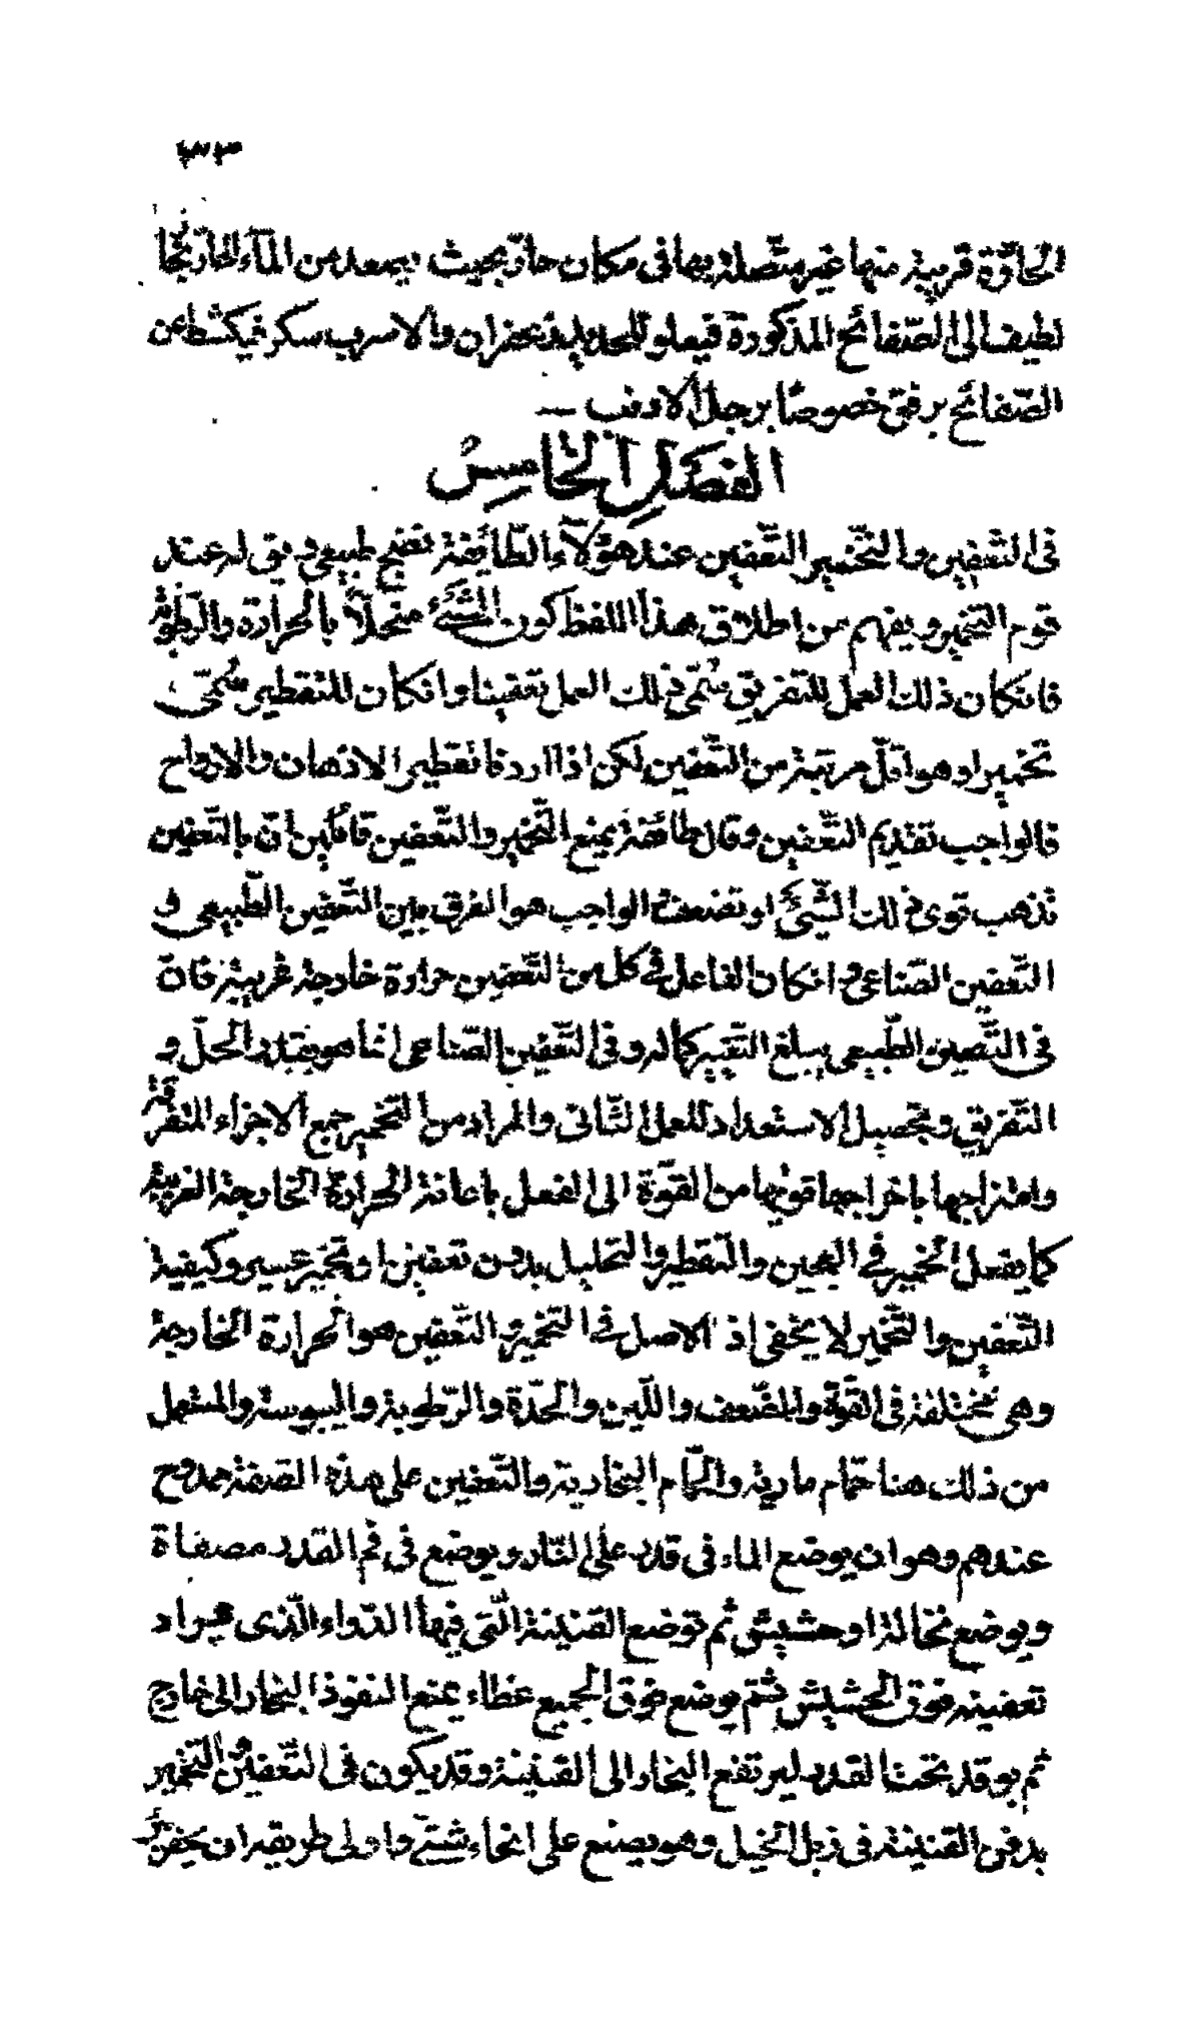 ٣٣
الحارّة قريبة منها غير متّصلة بها فى مكان حارّ بحيث يصعد من المآء الحارّ بخارًا
لطيف الى الصّفائح المذكورة فيعلو للحديد زعفران والاسرب سكر فيكشط عن
الصّفائح برفق خصوصًا برجل الارنب
الفصل الخامس
فى التعفين والتخمير التّعفين عند هؤلآء الطّائفة نضج طبيعى ويق له عند
قوم التخمير ويفهم من اطلاق هذا اللفظ كون الشّىء منحلاً بالحرارة والرّطوبة
فانكان ذلك العمل للتفريق سُمّى ذلك العمل تعفينا وانكان للتقطير سُمّى
تخميرا وهو اقلّ مرتبة من التّعفين لكن اذا اردنا تقطير الادهان والارواح
فالواجب تقديم التّعفين وقال طائفة بمنع التّخمير والتّعفين قائلين انّ بالتّعفين
تذهب قوى ذلك الشّىء او تضعف الواجب هو الفرق بين التّعفين الطّبيعى و
التّعفين الصّناعى وانكان الفاعل فى كل من التّعفين حرارة خارجة غريبة فان
فى التّعفين الطّبيعى يبلغ التّغيير كماله وفى التّعفين الصّناعى انما هو بقدر الحلّ و
التّفريق وتحصيل الاستعداد للعمل الثّانى والمراد من التخمير جمع الاجزاء المتفرّقة
وامتزاجها باخراجها قوتها من القوّة الى الفعل باعانة الحرارة الخارجة الغريبة
كما يفعل الخمير فى العجين والتقطير والتحليل بدون تعفين او تخمير عسير وكيفية
التّعفين والتّخمير لا يخفى اذ الاصل فى التّخمير والتّعفين هو الحرارة الخارجة
وهى مختلفة فى القوّة والضّعف واللّين والحدّة والرّطوبة واليبوسة والمستعمل
من ذلك هنا حمّام مارية والحمّام البخارية والتّعفين على هذه الصفة ممدوح
عندهم وهو ان يوضع الماء فى قدر على النّار ويوضع فى فم القدر مصفاة
ويوضع نخالة او حشيش ثم توضع القنينة الّتى فيها الدّواء الّذى يراد
تعفينه فوق الحشيش ثم يوضع فوق الجميع غطاء يمنع النفوذ البخار الى خارج
ثم يوقد تحت القدر ليرتفع البخار الى القنينة وقد يكون فى التّعفين والتخمير
بدفن القنينة فى زبل الخيل وهو يصنع على انحاء شتّى واولى طريقه ان يحفر